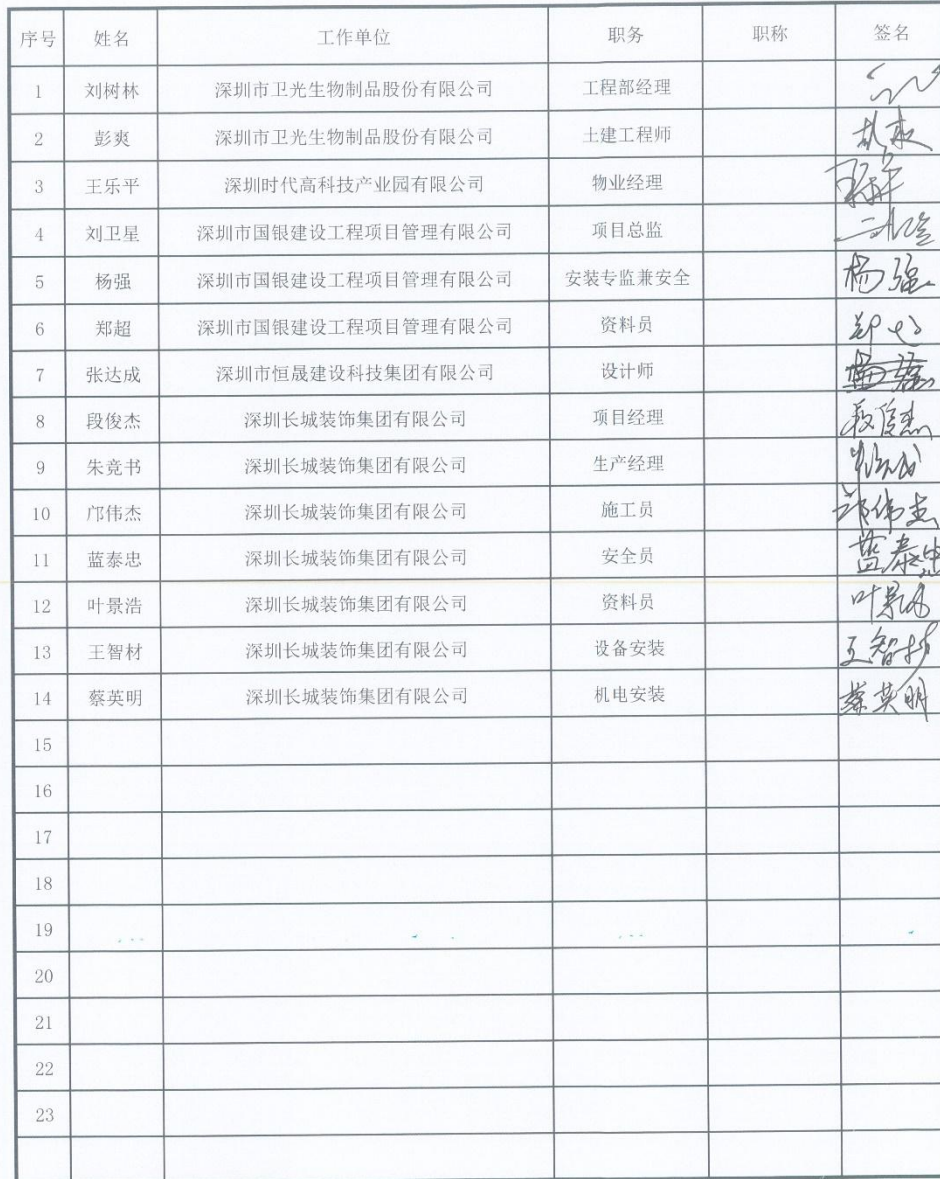 序号 姓名 工作单位 职务 职称 签名
1 刘树林 深圳市卫光生物制品股份有限公司 工程部经理
2 彭爽 深圳市卫光生物制品股份有限公司 土建工程师
3 王乐平 深圳时代高科技产业园有限公司 物业经理
4 刘卫星 深圳市国银建设工程项目管理有限公司 项目总监
5 杨强 深圳市国银建设工程项目管理有限公司 安装专监兼安全 杨强
6 郑超 深圳市国银建设工程项目管理有限公司 资料员
7 张达成 深圳市恒晟建设科技集团有限公司 设计师
8 段俊杰 深圳长城装饰集团有限公司 项目经理 段俊杰
9 朱竞书 深圳长城装饰集团有限公司 生产经理
10 邝伟杰 深圳长城装饰集团有限公司 施工员 邝伟杰
11 蓝泰忠 深圳长城装饰集团有限公司 安全员 蓝泰忠
12 叶景浩 深圳长城装饰集团有限公司 资料员 叶景浩
13 王智材 深圳长城装饰集团有限公司 设备安装 王智材
14 蔡英明 深圳长城装饰集团有限公司 机电安装 蔡英明
15
16
17
18
19
20
21
22
23